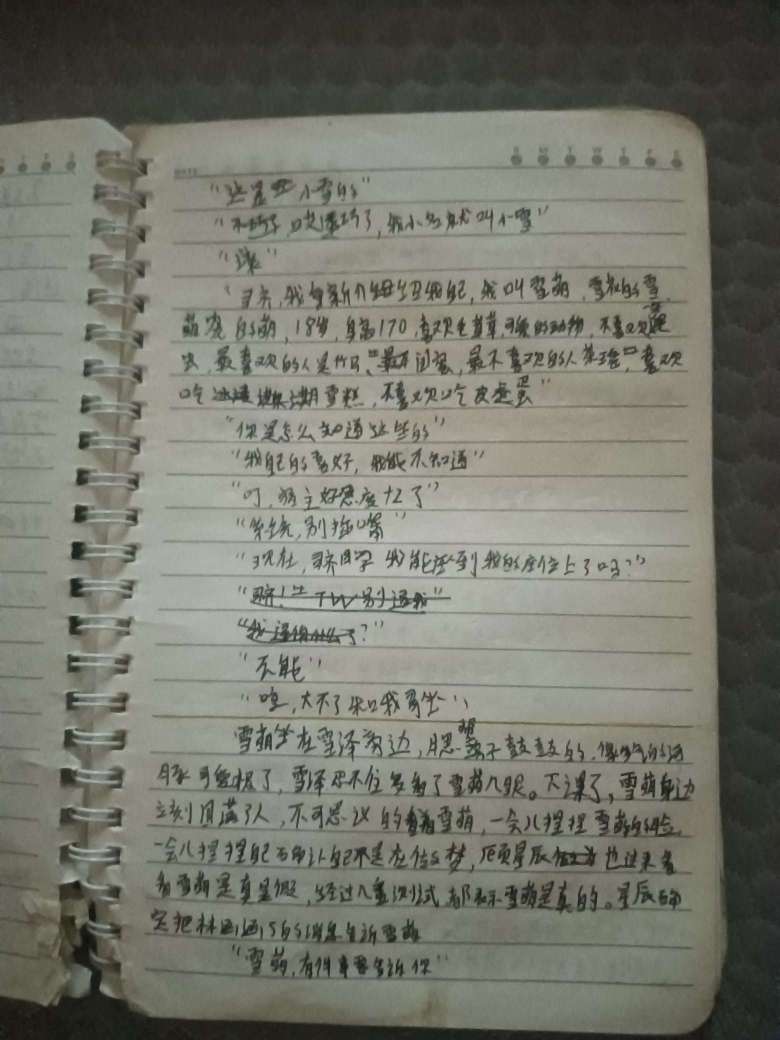 "这是 小雪的"
"不巧了,只是巧了,我小名就叫小雪"
"滚"
"寻亲,我重新介绍绍我自己,我叫雪萌,雪花的雪,
萌宠的萌,18岁,身高170,喜欢毛茸茸,可爱的动物,不喜欢爬
虫,最喜欢的人是 ,最不喜欢的人 ,喜欢
吃 雪糕,不喜欢吃皮蛋"
"你是怎么知道这些的"
"我自己的喜好,我能不知道"
"叮,宿主好感度 了"
"系统,别插嘴"
"现在, 同学 我能坐到我的座位上了吗?"
"别逼我"
"我逼你什么了?"
"不能"
"哇,大不了和我哥坐"
雪萌坐在雪泽旁边,腮帮子鼓鼓的,像生气的河
豚 可爱极了,雪泽忍不住多看了雪萌几眼。下课了,雪萌身边
立刻围满了人,不可思议的看着雪萌,一会儿捏捏雪萌的脸,
一会儿捏捏自己 确认自己不是在做梦, 星辰 也过来看
看雪萌是真是假,经过几番测试 都表示雪萌是真的。星辰 确
定把林 的消息告诉雪萌
"雪萌,有件事要告诉你"